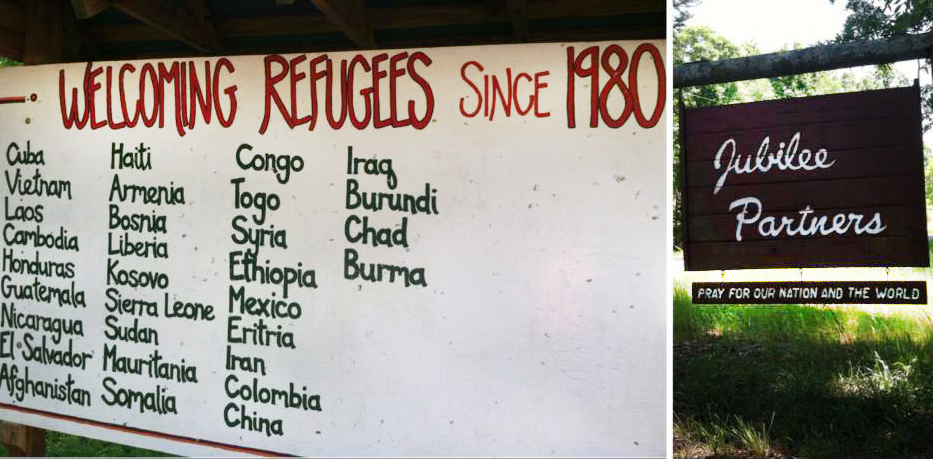 WELCOMING REFUGEES SINCE 1980
Cuba
Vietnam
Laos
Cambodia
Honduras
Guatemala
Nicaragua
El Salvador
Afghanistan
Haiti
Armenia
Bosnia
Liberia
Kosovo
Sierra Leone
Sudan
Mauritania
Somalia
Congo
Togo
Syria
Ethiopia
Mexico
Eritria
Iran
Colombia
China
Iraq
Burundi
Chad
Burma
Jubilee
Partners
PRAY FOR OUR NATION AND THE WORLD